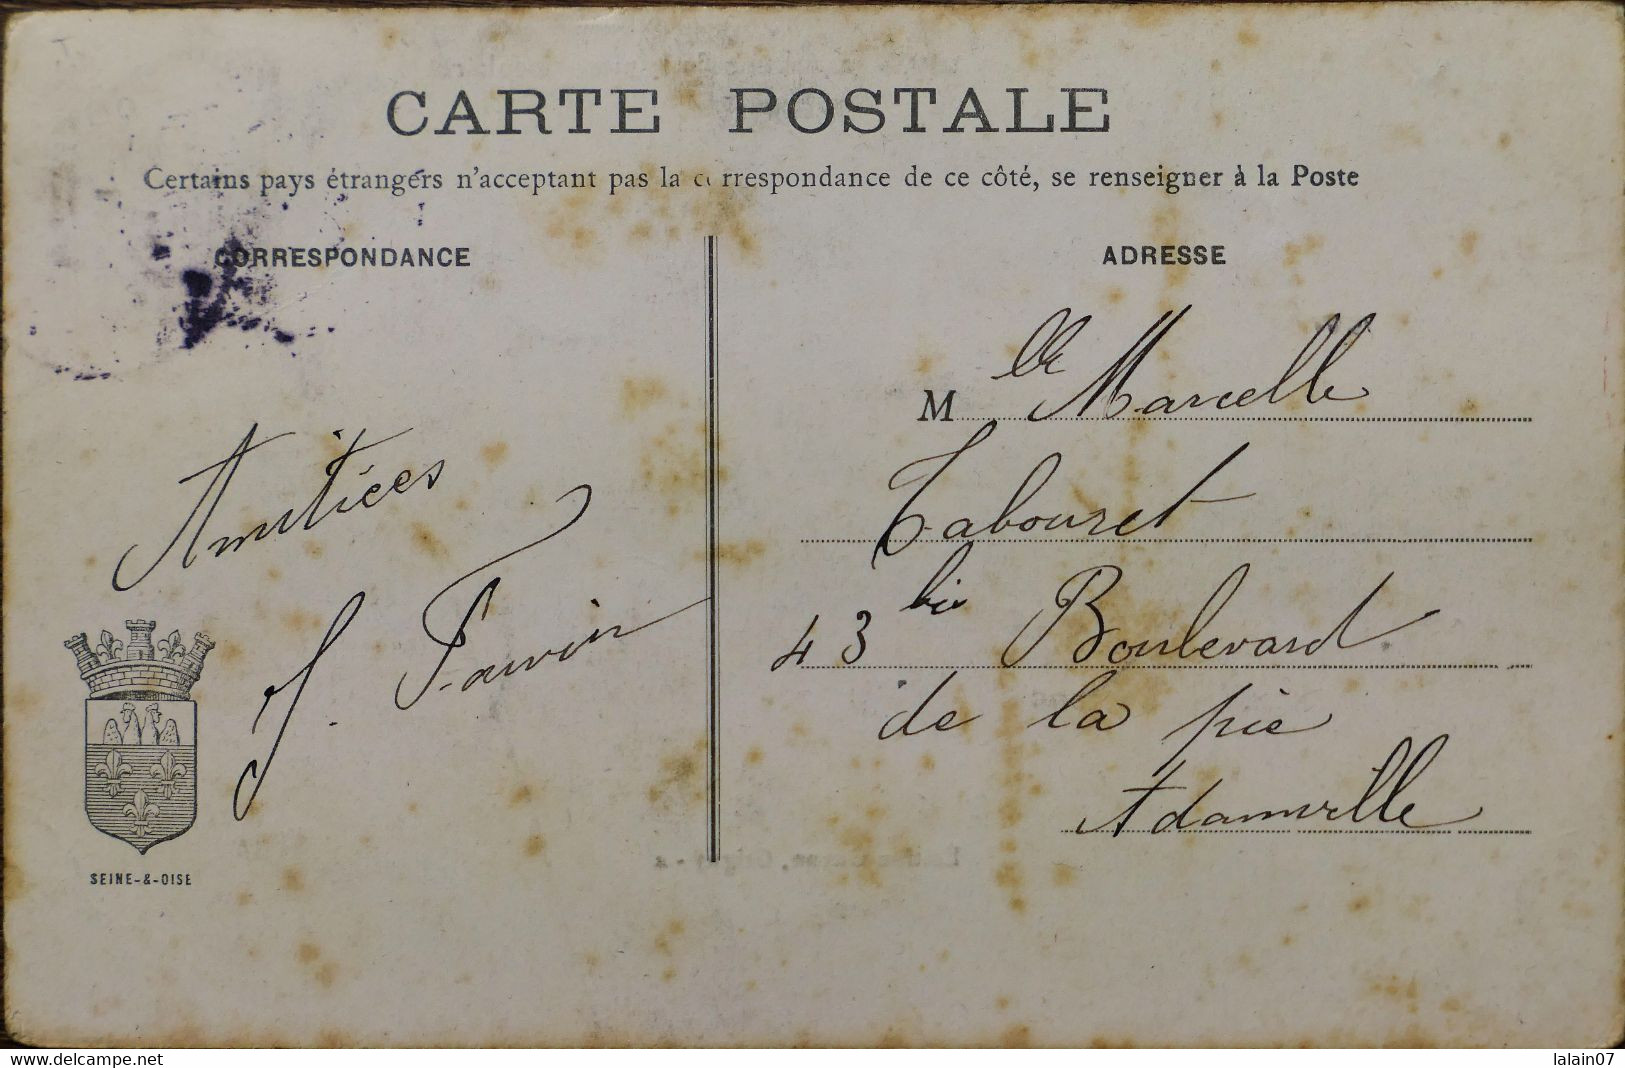 CARTE POSTALE
Certains pays étrangers n'acceptant pas la correspondance de ce côté, se renseigner à la Poste
CORRESPONDANCE
Amitiées
J. Fauvin
SEINE-&-OISE
ADRESSE
Mlle Marcelle
Tabouret
43 bis Boulevard
de la pie
Adamville
www.delcampe.net
lalain07